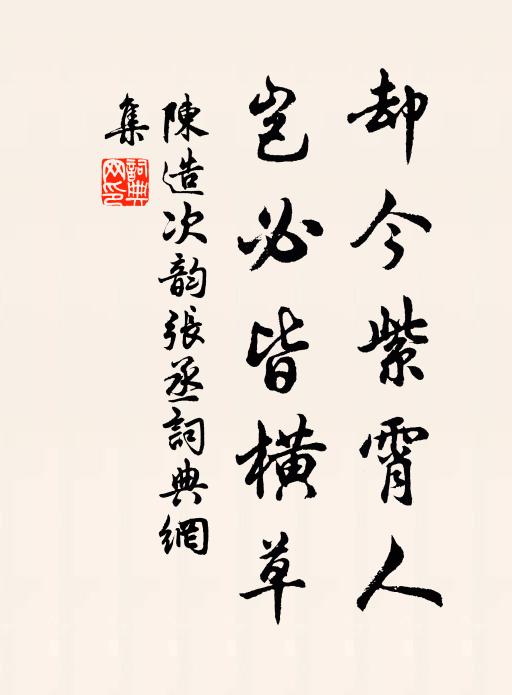 却今紫霄人
豈必皆橫草
陳造次韵張丞詞典網
集
詞典網印